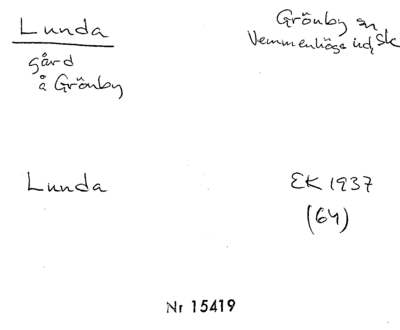 Lunda
gård
å Grönby
Grönby sn
Vemmenhögs hd, Sk
Lunda
EK 1937
(64)
Nr 15419